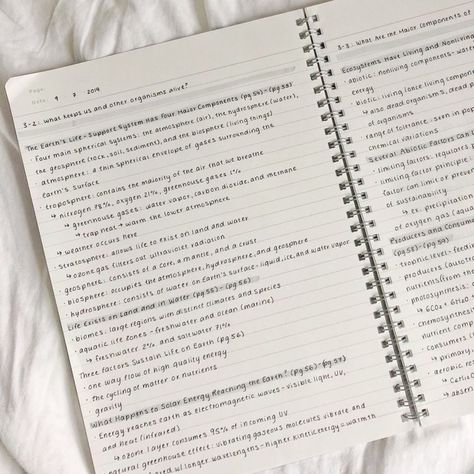 Page:
Date: 9 7 2019
3-2: What keeps us and other organisms alive?
The Earth's Life-Support System Has Four Major Components (pg 54) - (pg 55)
· Four main spherical systems: the atmosphere (air), the hydrosphere (water),
the geosphere (rock, soil, sediment), and the biosphere (living things)
· atmosphere: a thin spherical envelope of gases surrounding the
Earth's surface
· troposphere: contains the majority of the air that we breathe
↳ nitrogen 78%, oxygen 21%, greenhouse gases 1%
↳ greenhouse gases: water vapor, carbon dioxide, and methane
↳ trap heat → warm the lower atmosphere
↳ weather occurs here
· stratosphere: allows life to exist on land and water
↳ ozone gas filters out ultraviolet radiation
· geosphere: consists of a core, a mantle, and a crust
· biosphere: occupies the atmosphere, hydrosphere, and geosphere
· hydrosphere: consists of water on Earth's surface: liquid, ice, and water vapor
Life Exists on Land and in Water (pg 55) - (pg 56)
· biomes: large regions with distinct climates and species
· aquatic life zones - freshwater and ocean (marine)
↳ freshwater 2% and saltwater 71%
Three Factors Sustain Life on Earth (pg 56)
· one way flow of high quality energy
· the cycling of matter or nutrients
· gravity
What Happens to Solar Energy Reaching the Earth? (pg 56) - (pg 57)
· Energy reaches earth as electromagnetic waves - visible light, UV,
and heat (infrared)
↳ ozone layer consumes 95% of incoming UV
· natural greenhouse effect: vibrating gaseous molecules vibrate and
w/ longer wavelengths - higher kinetic energy = warmth
3-3: What Are the Major Components of
Ecosystems Have Living and Nonliving
· abiotic: nonliving components - wat
energy
· biotic: living (once living compon
↳ also dead organisms, dead p
of organisms
· range of tolerance: seen in po
chemical variations
Several Abiotic Factors Can
· limiting factors: regulate
· limiting factor princip
factor can limit or prev
of sustainability
↳ ex. precipitation
of oxygen gas (aqua
Producers and Consum
(pg 58) - (pg 59)
· trophic level: feed
· producers (autot
nutrients (from
· photosynthesis:
↳ 6CO2 + 6H2
· chemosynthesi
nutrient com
· consumers (
· primary con
· aerobic re
↳ C6H12O
↳ absen